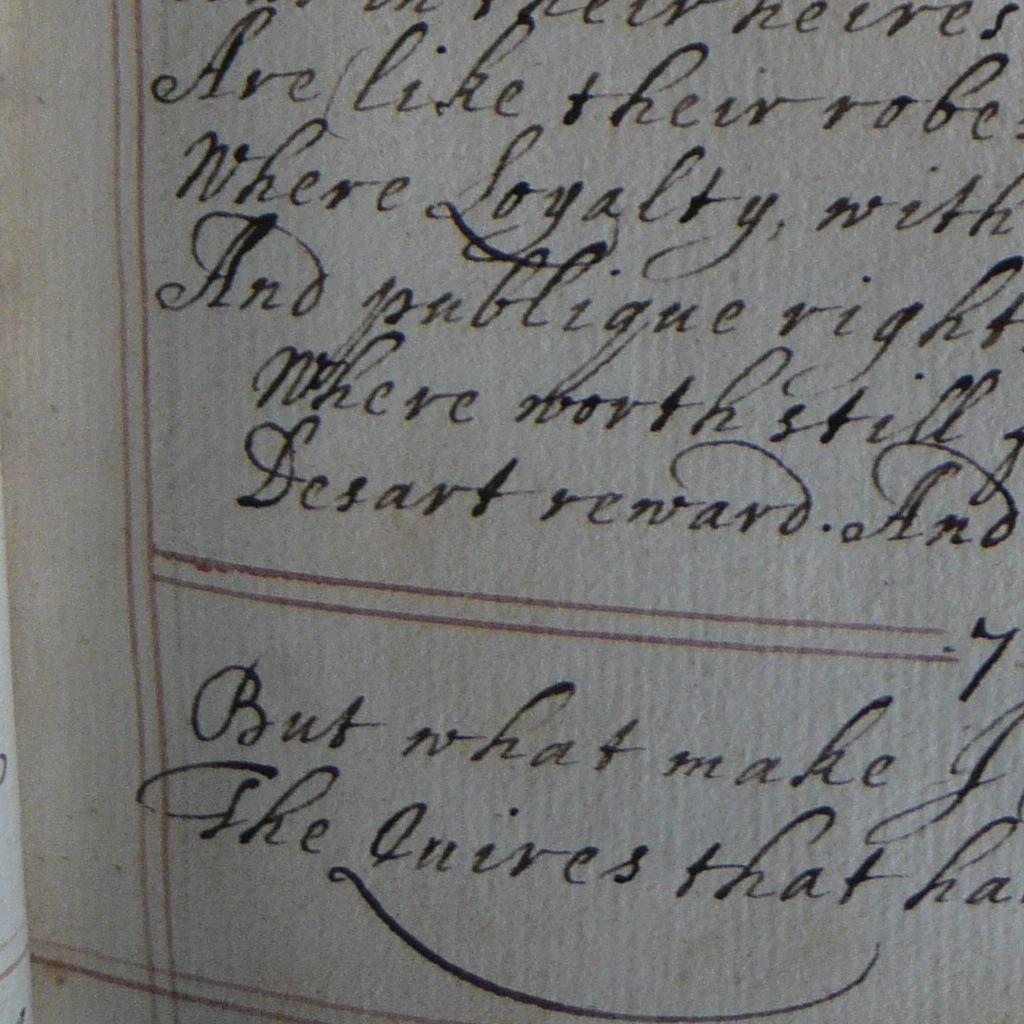 in their heires
Are like their robe
Where Loyalty, with
And publique right,
Where worth still
Desart reward. And
.7
But what make I
The Quires that ha